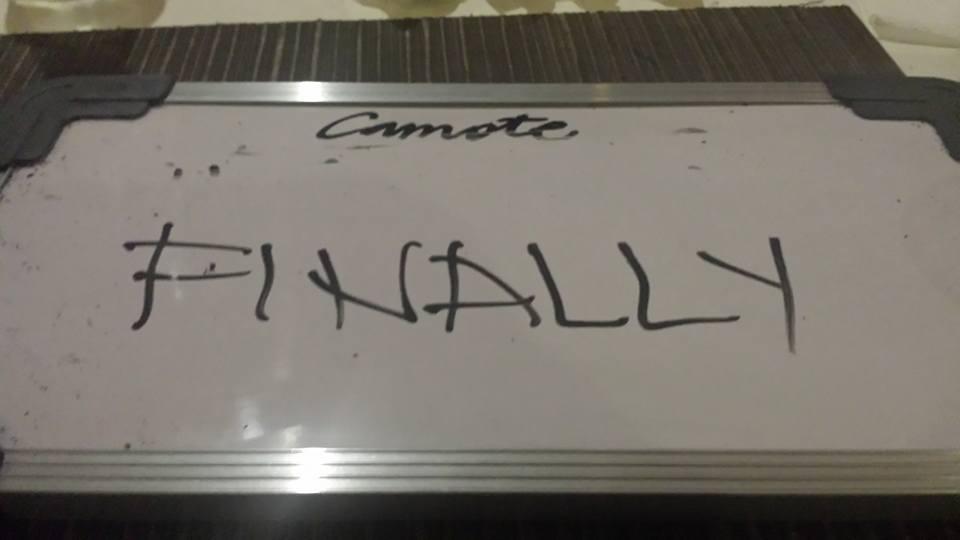 Camote
FINALLY